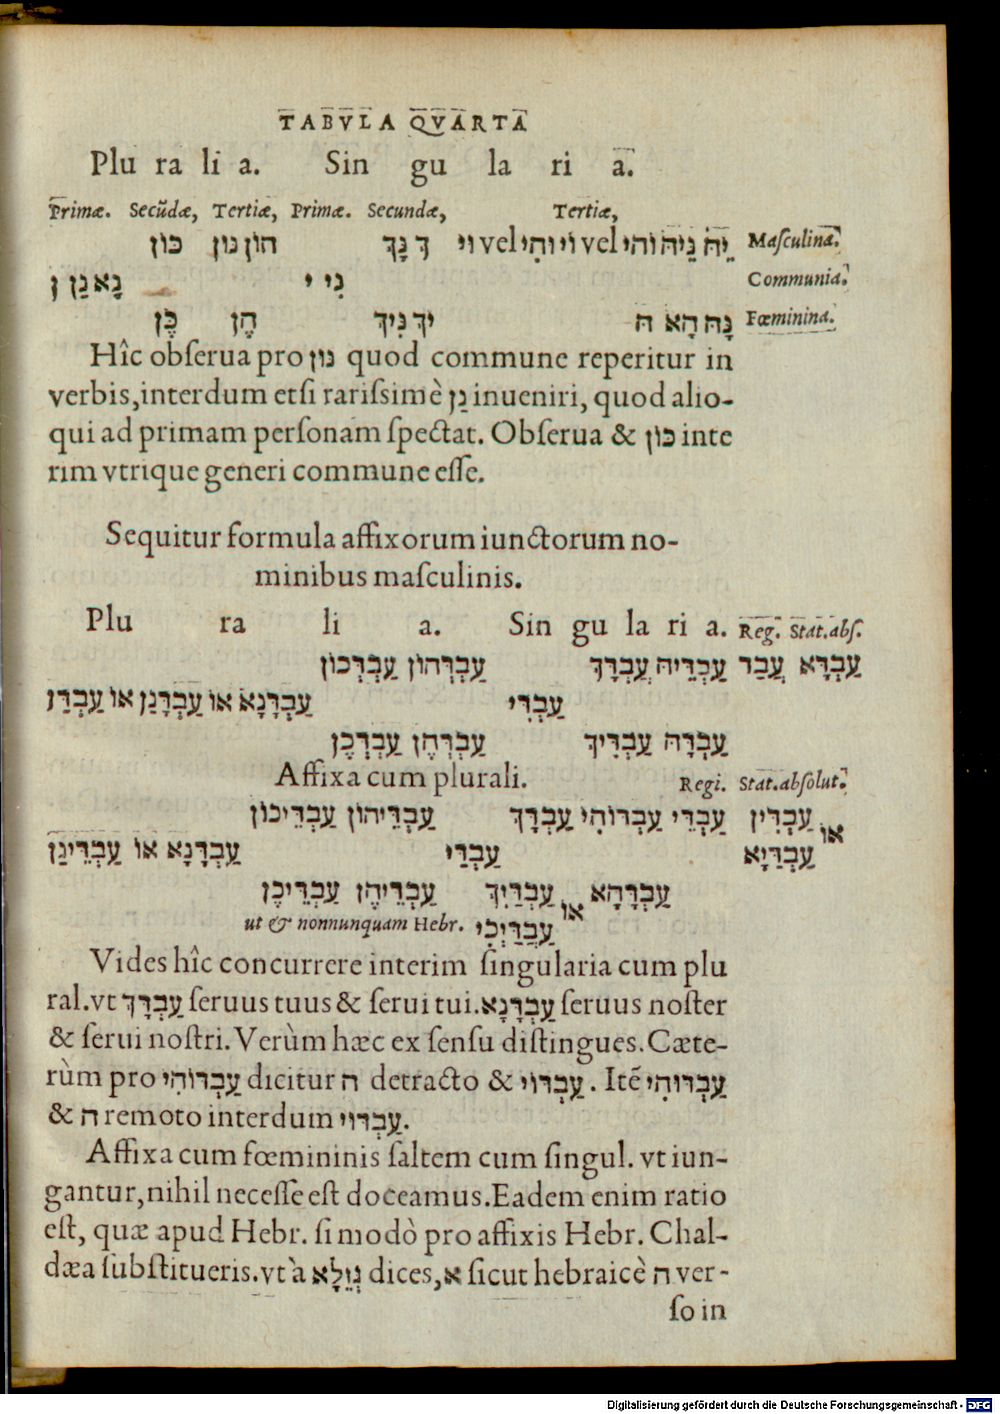 TABVLA QVARTA
Plu ra li a. Sin gu la ri a.
Primæ. Secūdæ, Tertiæ, Primæ. Secundæ, Tertiæ,
כון הון נון ךָ נָךְ וי vel והִי וֹי vel וֹהי נֵיהּ יֵהּ Maſculina.
ן נַן נָא י נִי Communia.
כֶן הֶן יךְ נִיךְ הָא נָהּ Fœminina.
Hîc obſerua pro נון quod commune reperitur in
verbis, interdum etſi rariſsimè נַן inueniri, quod alio-
qui ad primam perſonam ſpectat. Obſerua & כון inte
rim vtrique generi commune eſſe.
Sequitur formula affixorum iunctorum no-
minibus maſculinis.
Plu ra li a. Sin gu la ri a. Reg. Stat.abſ.
עַבְדְכוֹן עַבְדְהוֹן עַבְדָךְ עַבְדֵיהּ עֲבַד עַבְדָא
עַבְדַן אוֹ עַבְדָנַן אוֹ עַבְדָנָא עַבְדִי
עַבְדְכֶן עַבְדְהֶן עַבְדִיךְ עַבְדָהּ
Affixa cum plurali. Regi. Stat.abſolut.
עַבְדֵיכוֹן עַבְדֵיהוֹן עַבְדָךְ עַבְדוֹהִי עַבְדֵי עַבְדִין אוֹ
עַבְדֵינַן אוֹ עַבְדָנָא עַבְדַי עַבְדַיָא
עַבְדֵיכֶן עַבְדֵיהֶן עַבְדַיִךְ אוֹ עַבְדָהָא
ut & nonnunquam Hebr. עַבְדַיְכִי
Vides hîc concurrere interim ſingularia cum plu
ral. vt עַבְדָךְ ſeruus tuus & ſerui tui. עַבְדָנָא ſeruus noſter
& ſerui noſtri. Verùm hæc ex ſenſu diſtingues. Cæte-
rùm pro עַבְדוֹהִי dicitur ה detracto & עַבְדוֹי. Itē עַבְדוּהִי
& ה remoto interdum עַבְדוּי.
Affixa cum fœmininis ſaltem cum ſingul. vt iun-
gantur, nihil neceſſe eſt doceamus. Eadem enim ratio
eſt, quæ apud Hebr. ſi modò pro affixis Hebr. Chal-
dæa ſubſtitueris. vt à נְוֵלָא dices, א ſicut hebraicè ה ver-
ſo in
Digitalisierung gefördert durch die Deutsche Forschungsgemeinschaft - DFG